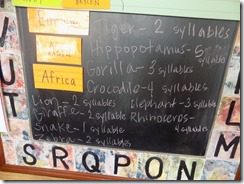 Asia
Africa
Tiger - 2 syllables
Hippopotamus - 5 syllables
Gorilla - 3 syllables
Crocodile - 4 syllables
Lion - 2 syllables
Elephant - 3 syllables
Giraffe - 2 syllables
Rhinoceros - 4 syllables
Snake - 1 syllable
Zebra - 2 syllables
U
T
L
M
S R Q P O N